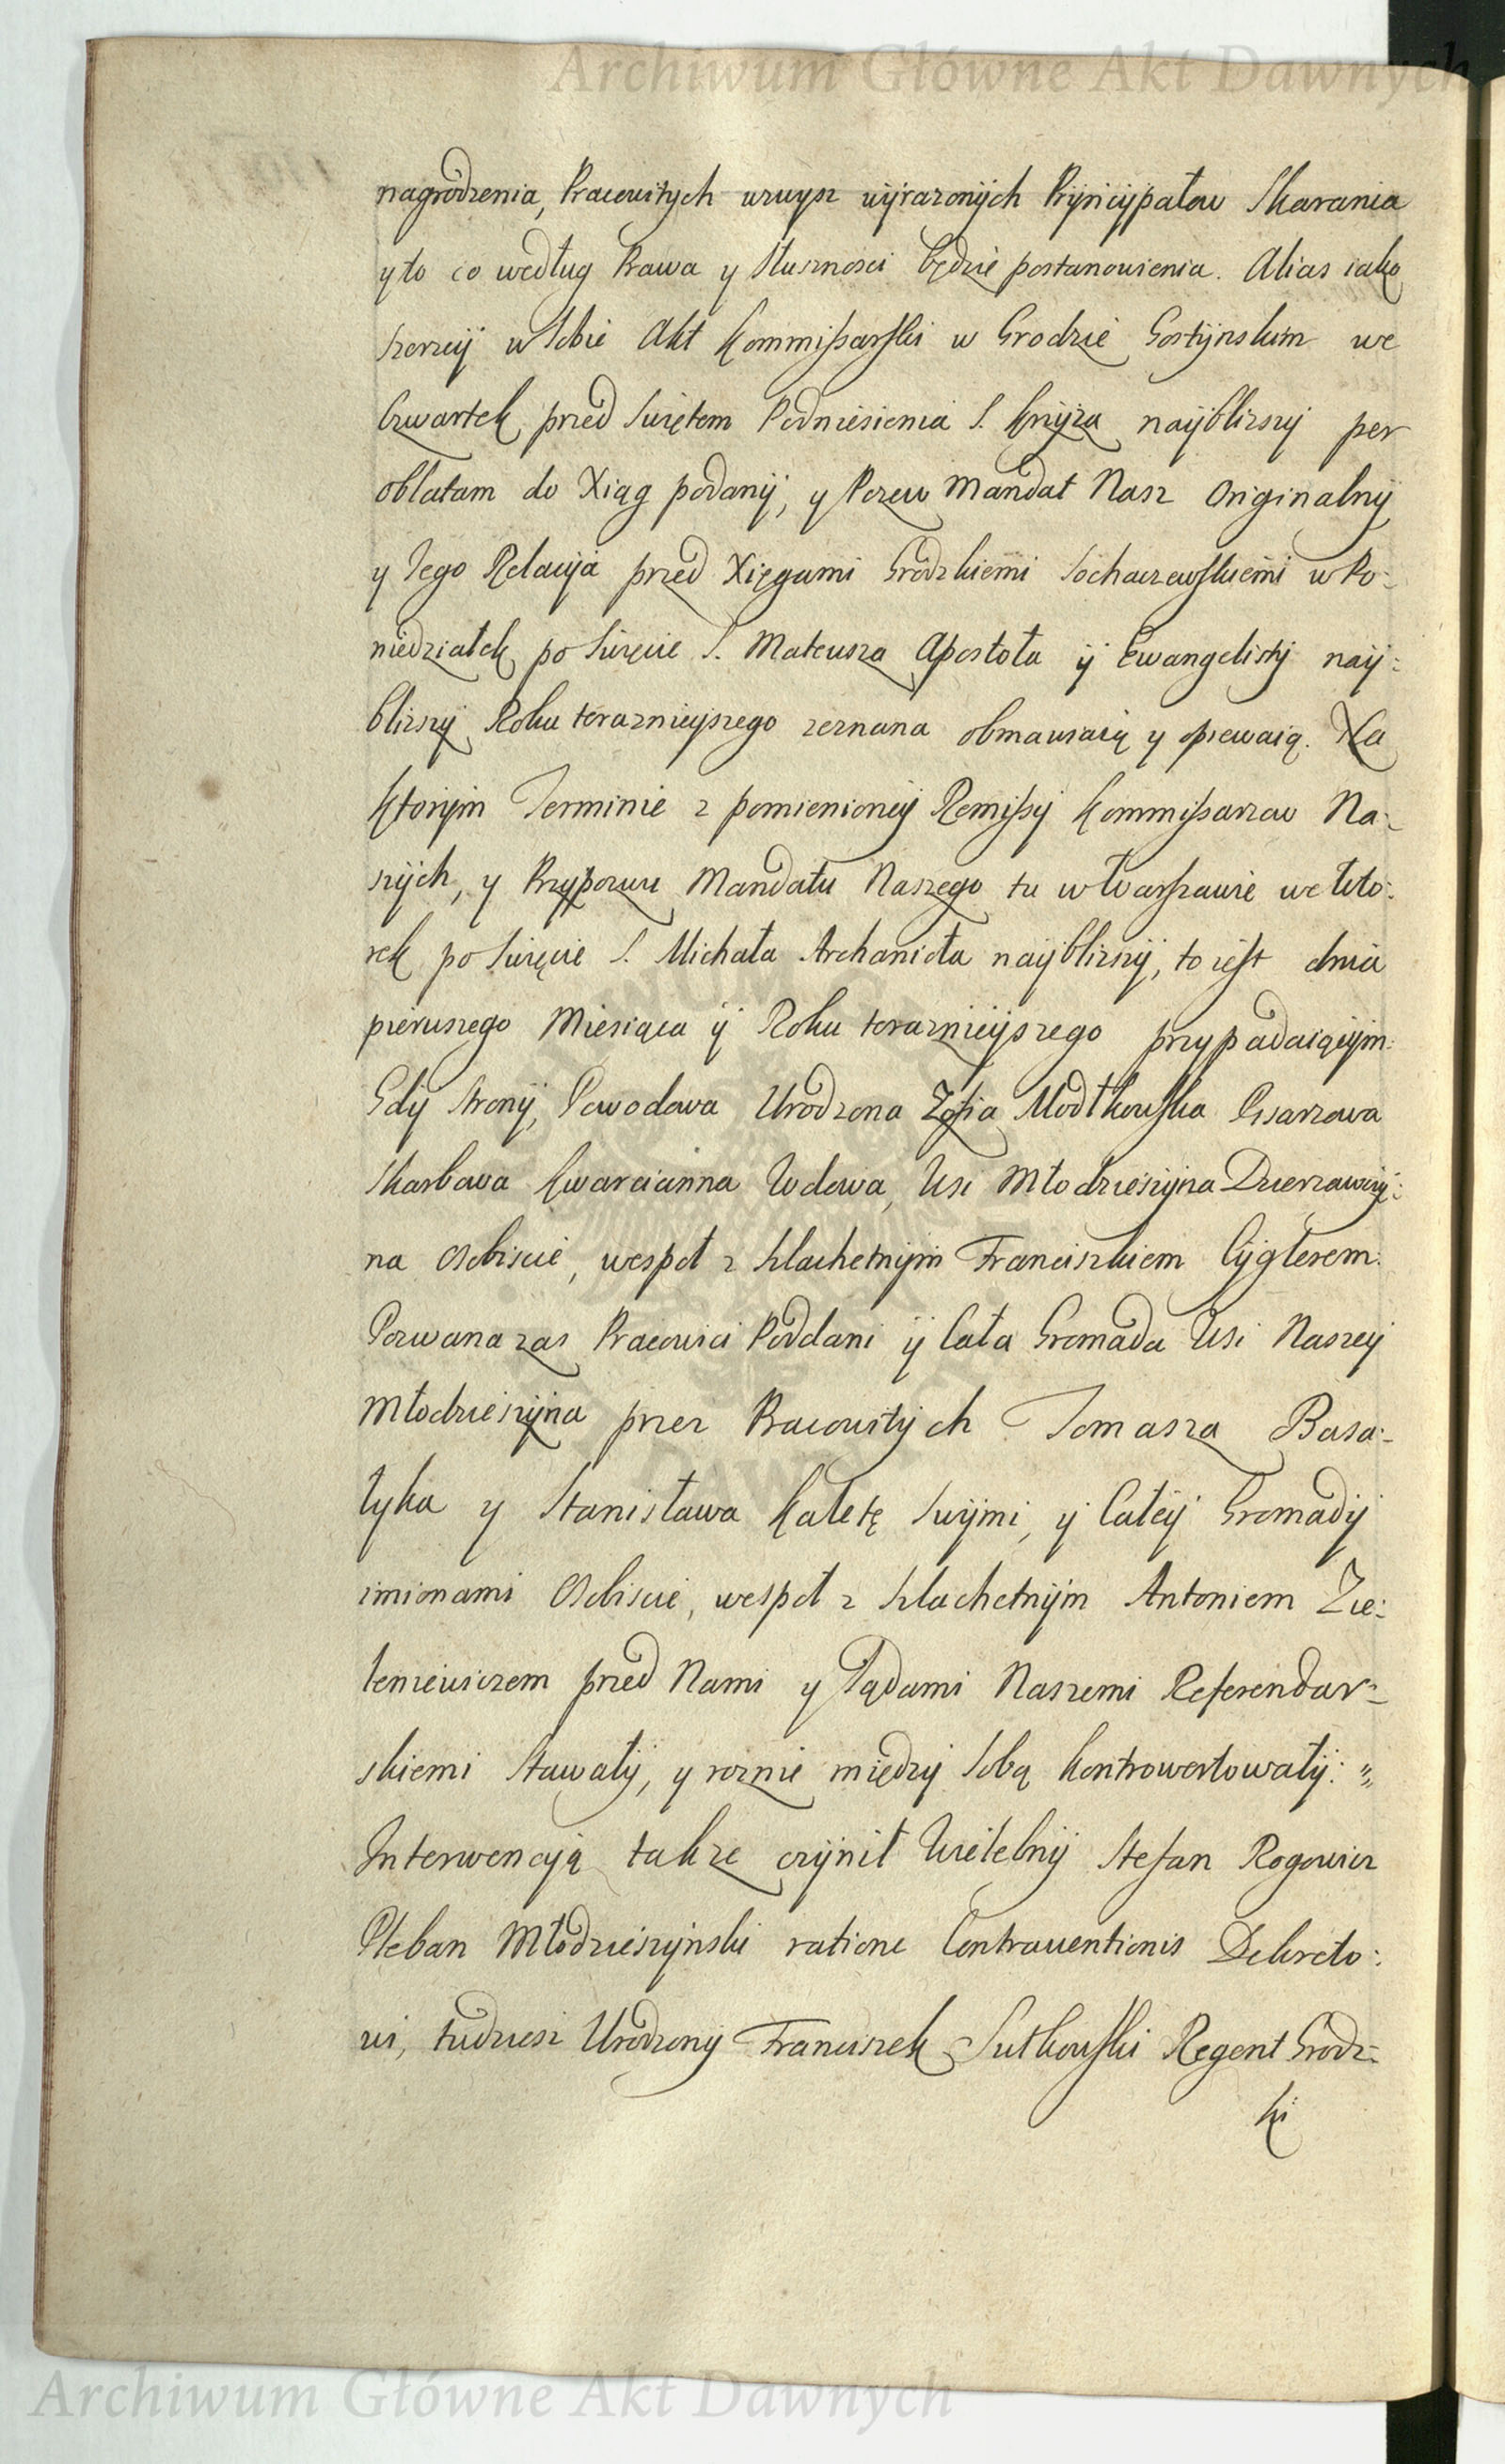 Archiwum Główne Akt Dawnych
nagrodzenia, Pracowitych wzwysz wÿrazonÿch Prÿncÿpałow Skarania
y to co według Prawa y Słusznosci będzie postanowienia. Alias iako
szerzeÿ w Sobie Akt Kommissarski w Grodzie Gostÿnskim we
Czwartek przed Swiętem Podniesienia S. Krzÿza naÿblizszÿ per
oblatam do Xiąg podanÿ, y Pozew Mandat Nasz Originalnÿ
y Jego Relacÿa przed Xięgami Grodzkiemi Sochaczewskiemi w Po:
niedziałek po Swięcie S. Mateusza Apostoła ÿ Ewangelistÿ naÿ:
blizszÿ Roku terazniejszego zeznana obmawiaią y opiewaią. Na
ktorÿm Terminie z pomienioneÿ Remissÿ Kommissarzow Na:
szÿch, y Przypozwu Mandatu Naszego tu w Warszawie we Wto:
rek po Swięcie S. Michała Archanioła naÿblizszÿ, to iest dnia
pierwszego Miesiąca ÿ Roku teraznieÿszego przypadaiącÿm:
Gdÿ Stronÿ, Powodowa Urodzona Zofia Modtkowska Pisarzowa
Skarbowa Kwarcianna Wdowa, Wsi Młodzieszÿna Dzierzawczÿ:
na Osobiscie, wespoł z Szlachetnÿm Franciszkiem Cÿglerem:
Pozwana zas Pracowici Poddani ÿ Cała Gromada Wsi Naszeÿ
Młodzieszÿna przez Pracowitÿch Tomasza Basa:
łyka y Stanisława Kaletę Swÿmi, y Całeÿ Gromadÿ
imionami Osobiscie, wespoł z Szlachetnÿm Antoniem Zie:
leniewiczem przed Nami y Sądami Naszemi Referendar:
skiemi Stawałÿ, y roznie międzÿ Sobą kontrowertowałÿ:
Interwencÿą takze czÿnił Wielebnÿ Stefan Rogowicz
Pleban Młodzieszÿnski ratione Contraventionis Dekreto:
wi, tudziesz Urodzonÿ Franciszek Sutkowski Regent Grodz:
ki
Archiwum Główne Akt Dawnych